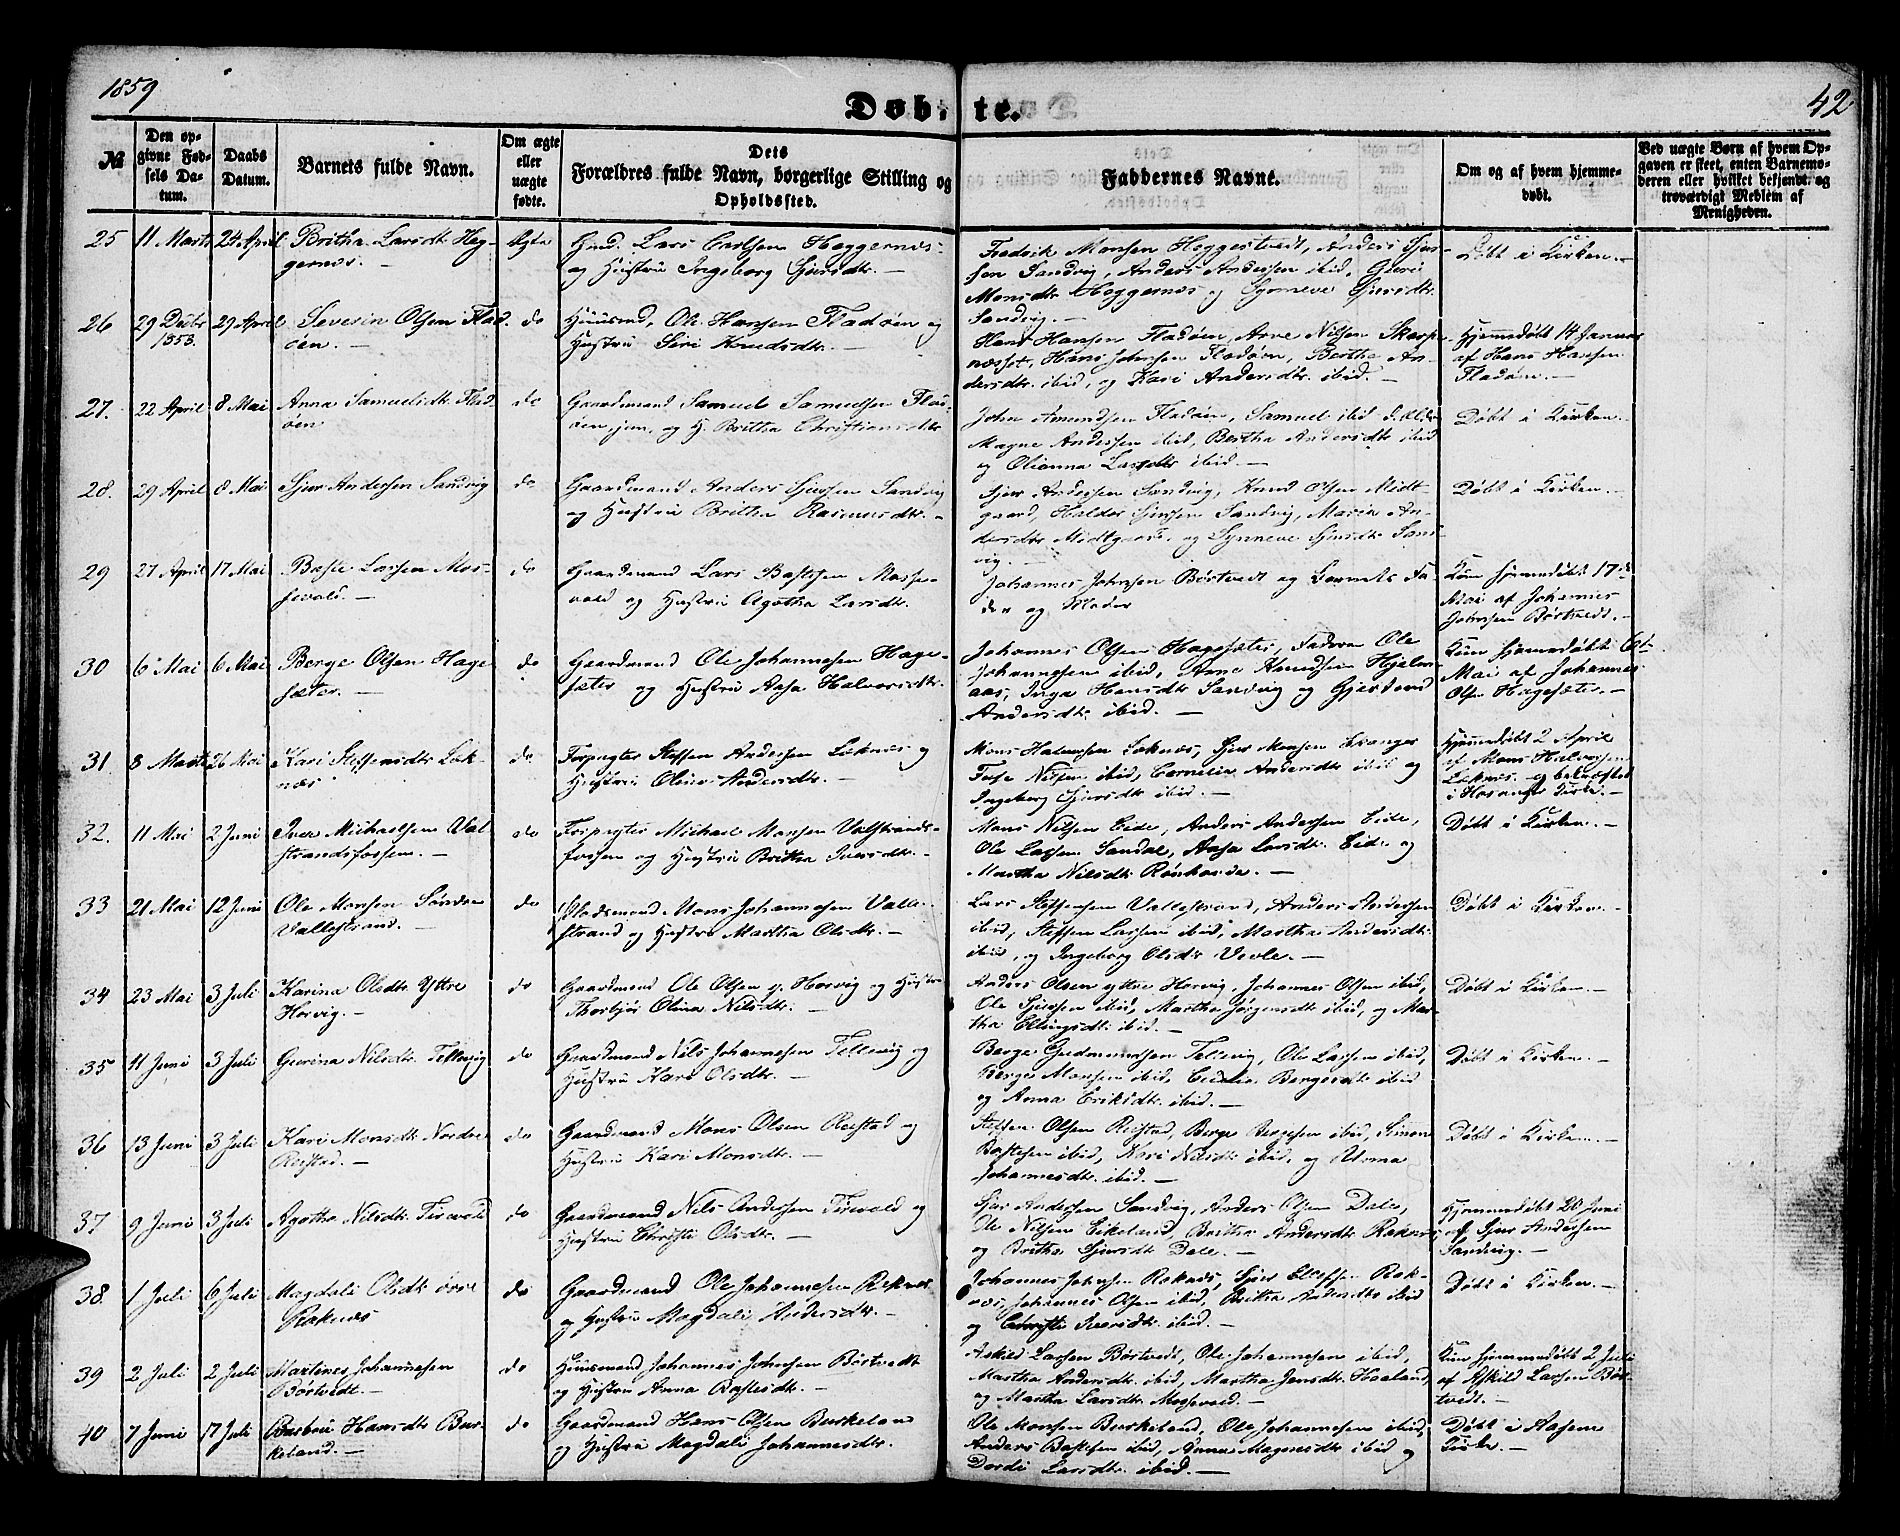 1859
Døbte.
42
№
Den op-
givne Fød-
sels Da-
tum.
Daabs
Datum.
Barnets fulde Navn.
Om ægte
eller
uægte
fødte.
Dets
Forældres fulde Navn, borgerlige Stilling og
Opholdssted.
Faddernes Navne.
Om og af hvem hjemme-
døbt.
Ved uægte Børn af hvem Op-
gaven er skeet, enten Barnemo-
deren eller hvilket bekjendt og
troværdigt Medlem af
Menigheden.
25 11 Marts 24 April Britha Larsdtr Hog-
gernæs. —
Ægte
Gmd. Lars Carlsen Hoggernæs
og Hustru Ingeborg Sjursdtr. —
Fredrik Monsen Heggestvedt, Anders Sjur-
sen Sandvig, Anders Andersen ibid, Guri
Monsdtr Hoggernæs og Synneve Sjursdtr
Sandvig. —
Døbt i Kirken. —
26 29 Decbr 29 April Severin Olsen Flad-
1858.
øen. —
do
Huusmd, Ole Hansen Fladøen og
Hustru Siri Knudsdtr. —
Hans Hansen Fladøen, Arne Nilsen Skarp-
næsset, Hans Johnsen Fladøen, Bertha An-
dersdtr ibid, og Kari Andersdtr ibid. —
Hjemmedøbt 14 Januar
af Hans Hansen
Fladøen. —
27. 22 April 8 Mai Anna Samuelsdtr Flad-
øen
do
Gaardmand Samuel Samuelsen Flad-
øen, jun, og H. Britha Christiansdtr
John Amundsen Fladøen, Samuel ibid d. Æld.
Magne Andersen ibid, Bertha Andersdtr ibid
og Olianna Larsdtr ibid. —
Døbt i Kirken. —
28. 29 April 8 Mai Sjur Andersen Sandvig
do
Gaardmand Anders Sjursen Sandvig
og Hustru Britha Rasmusdtr. —
Sjur Andersen Sandvig, Knud Olsen Midt-
gaard, Haldor Sjursen Sandvig, Maria An-
dersdtr Midtgaard, og Synneve Sjursdtr Sand-
vig. —
Døbt i Kirken. —
29 27 April 17 Mai Baste Larsen Mos-
sevold. —
do
Gaardmand Lars Bastesen Mosse-
vold og Hustru Agatha Larsdtr.
Johannes Johnsen Børtvedt og Barnets Fa-
der og Moder
Kun hjemmedøbt 17de
Mai af Johannes
Johnsen Børtvedt. —
30 6 Mai 6 Mai Berge Olsen Hage-
sæter. —
do
Gaardmand Ole Johannesen Hage-
sæter og Hustru Aasa Halvorsdtr.
Johannes Olsen Hagesæter, Faderen Ole
Johannesen ibid, Arne Knudsen Hjelm-
aas, Inga Hansdtr Sandvig og Gjertrud
Andersdtr ibid. —
Kun hjemmedøbt 6t
Mai af Johannes
Olsen Hagesæter. —
31 8 Marts 26 Mai Kari Steffensdtr Løk-
næs
do
Forpagter Steffen Andersen Løknæs og
Hustru Oline Andersdtr. —
Mons Halvorsen Løknæs, Sjur Monsen Evanger
Nilsen ibid, Cornelia Andersdtr ibid og
Ingeborg Sjursdtr ibid. —
Hjemmedøbt 2 April
af Mons Halvorsen
Løknæs og bekræftet
i Hosanger Kirke. —
32. 11 Mai 2 Juni Iver Michaelsen Val-
strandsfossen. —
do
Forpagter Michael Monsen Valstrands-
fossen og Hustru Britha Iversdtr. —
Mons Nilsen Eide, Anders Andersen Eide,
Ole Larsen Sandal, Aasa Larsdtr Eide og
Martha Nilsdtr Rønhovde. —
Døbt i Kirken. —
33 21 Mai 12 Juni Ole Monsen Søndre
Vallestrand. —
do
Pladsmand Mons Johannesen Valle-
strand og Hustru Martha Olsdtr. —
Lars Steffensen Vallestrand, Anders Andersen
ibid, Steffen Larsen ibid, Martha Andersdtr
ibid, og Ingeborg Olsdtr Vevle. —
Døbt i Kirken. —
34 23 Mai 3 Juli Karina Olsdtr Yttre
Horvig. —
do
Gaardmand Ole Olsen y. Horvig og Hustru
Thorbjør Olina Nilsdtr. —
Anders Olsen yttre Horvig, Johannes Olsen ibid,
Ole Sjursen ibid, Martha Jørgensdtr ibid, og Mar-
tha Ellingsdtr ibid. —
Døbt i Kirken. —
35 11 Juni 3 Juli Gurina Nilsdtr Tellevig
do
Gaardmand Nils Johannesen Tellevig og
Hustru Kari Olsdtr. —
Berge Gudmundsen Tellevig, Ole Larsen ibid,
Berge Monsen ibid, Cecelia Bergesdtr ibid
og Anna Eriksdtr ibid. —
Døbt i Kirken. —
36 13 Juni 3 Juli Kari Monsdtr Nordre
Reistad. —
do
Gaardmand Mons Olsen Reistad og
Hustru Kari Monsdtr. —
Steffen Olsen Reistad, Berge Bergesen ibid, Simon
Bastesen ibid, Kari Nilsdtr ibid, og Anna
Johannesdtr ibid. —
Døbt i Kirken. —
37 9 Juni 3 Juli Agatha Nilsdtr Tirevold
do
Gaardmand Nils Andersen Tirevold og
Hustru Christi Olsdtr. —
Sjur Andersen Sandvig, Anders Olsen Dale,
Ole Nilsen Eikeland, Britha Andersdtr Raknæs
og Britha Sjursdtr Dale. —
Hjemmedøbt 20 Juni
af Sjur Andersen
Sandvig. —
38. 1 Juli 6 Juli Magdali Olsdtr øvre
Raknæs
do
Gaardmand Ole Johannesen Raknæs
og Hustru Magdali Andersdtr. —
Johannes Johnsen Raknæs, Sjur Rak-
næs, Johannes Olsen ibid, Britha Andersdtr ibid
og Christi Iversdtr ibid. —
Døbt i Kirken. —
39 2 Juli 2 Juli Martines Johannesen
Børtvedt. —
do
Huusmand Johannes Johnsen Børtvedt
og Hustru Anna Bastesdtr. —
Askild Larsen Børtvedt, Ole Johannesen ibid,
Martha Andersdtr ibid, Martha Jensdtr Haaland,
og Martha Larsdtr Mosevold. —
Kun hjemmedøbt 2 Juli
af Askild Larsen Bør-
tvedt. —
40 7 Juni 17 Juli Barbru Hansdtr Bur-
keland. —
do
Gaardmand Hans Olsen Burkeland
og Hustru Magdali Johannesdtr.
Ole Monsen Burkeland, Ole Johannesen ibid,
Anders Bastesen ibid, Anna Magnesdtr ibid og
Dordi Larsdtr ibid. —
Døbt i Aasene
Kirke. —